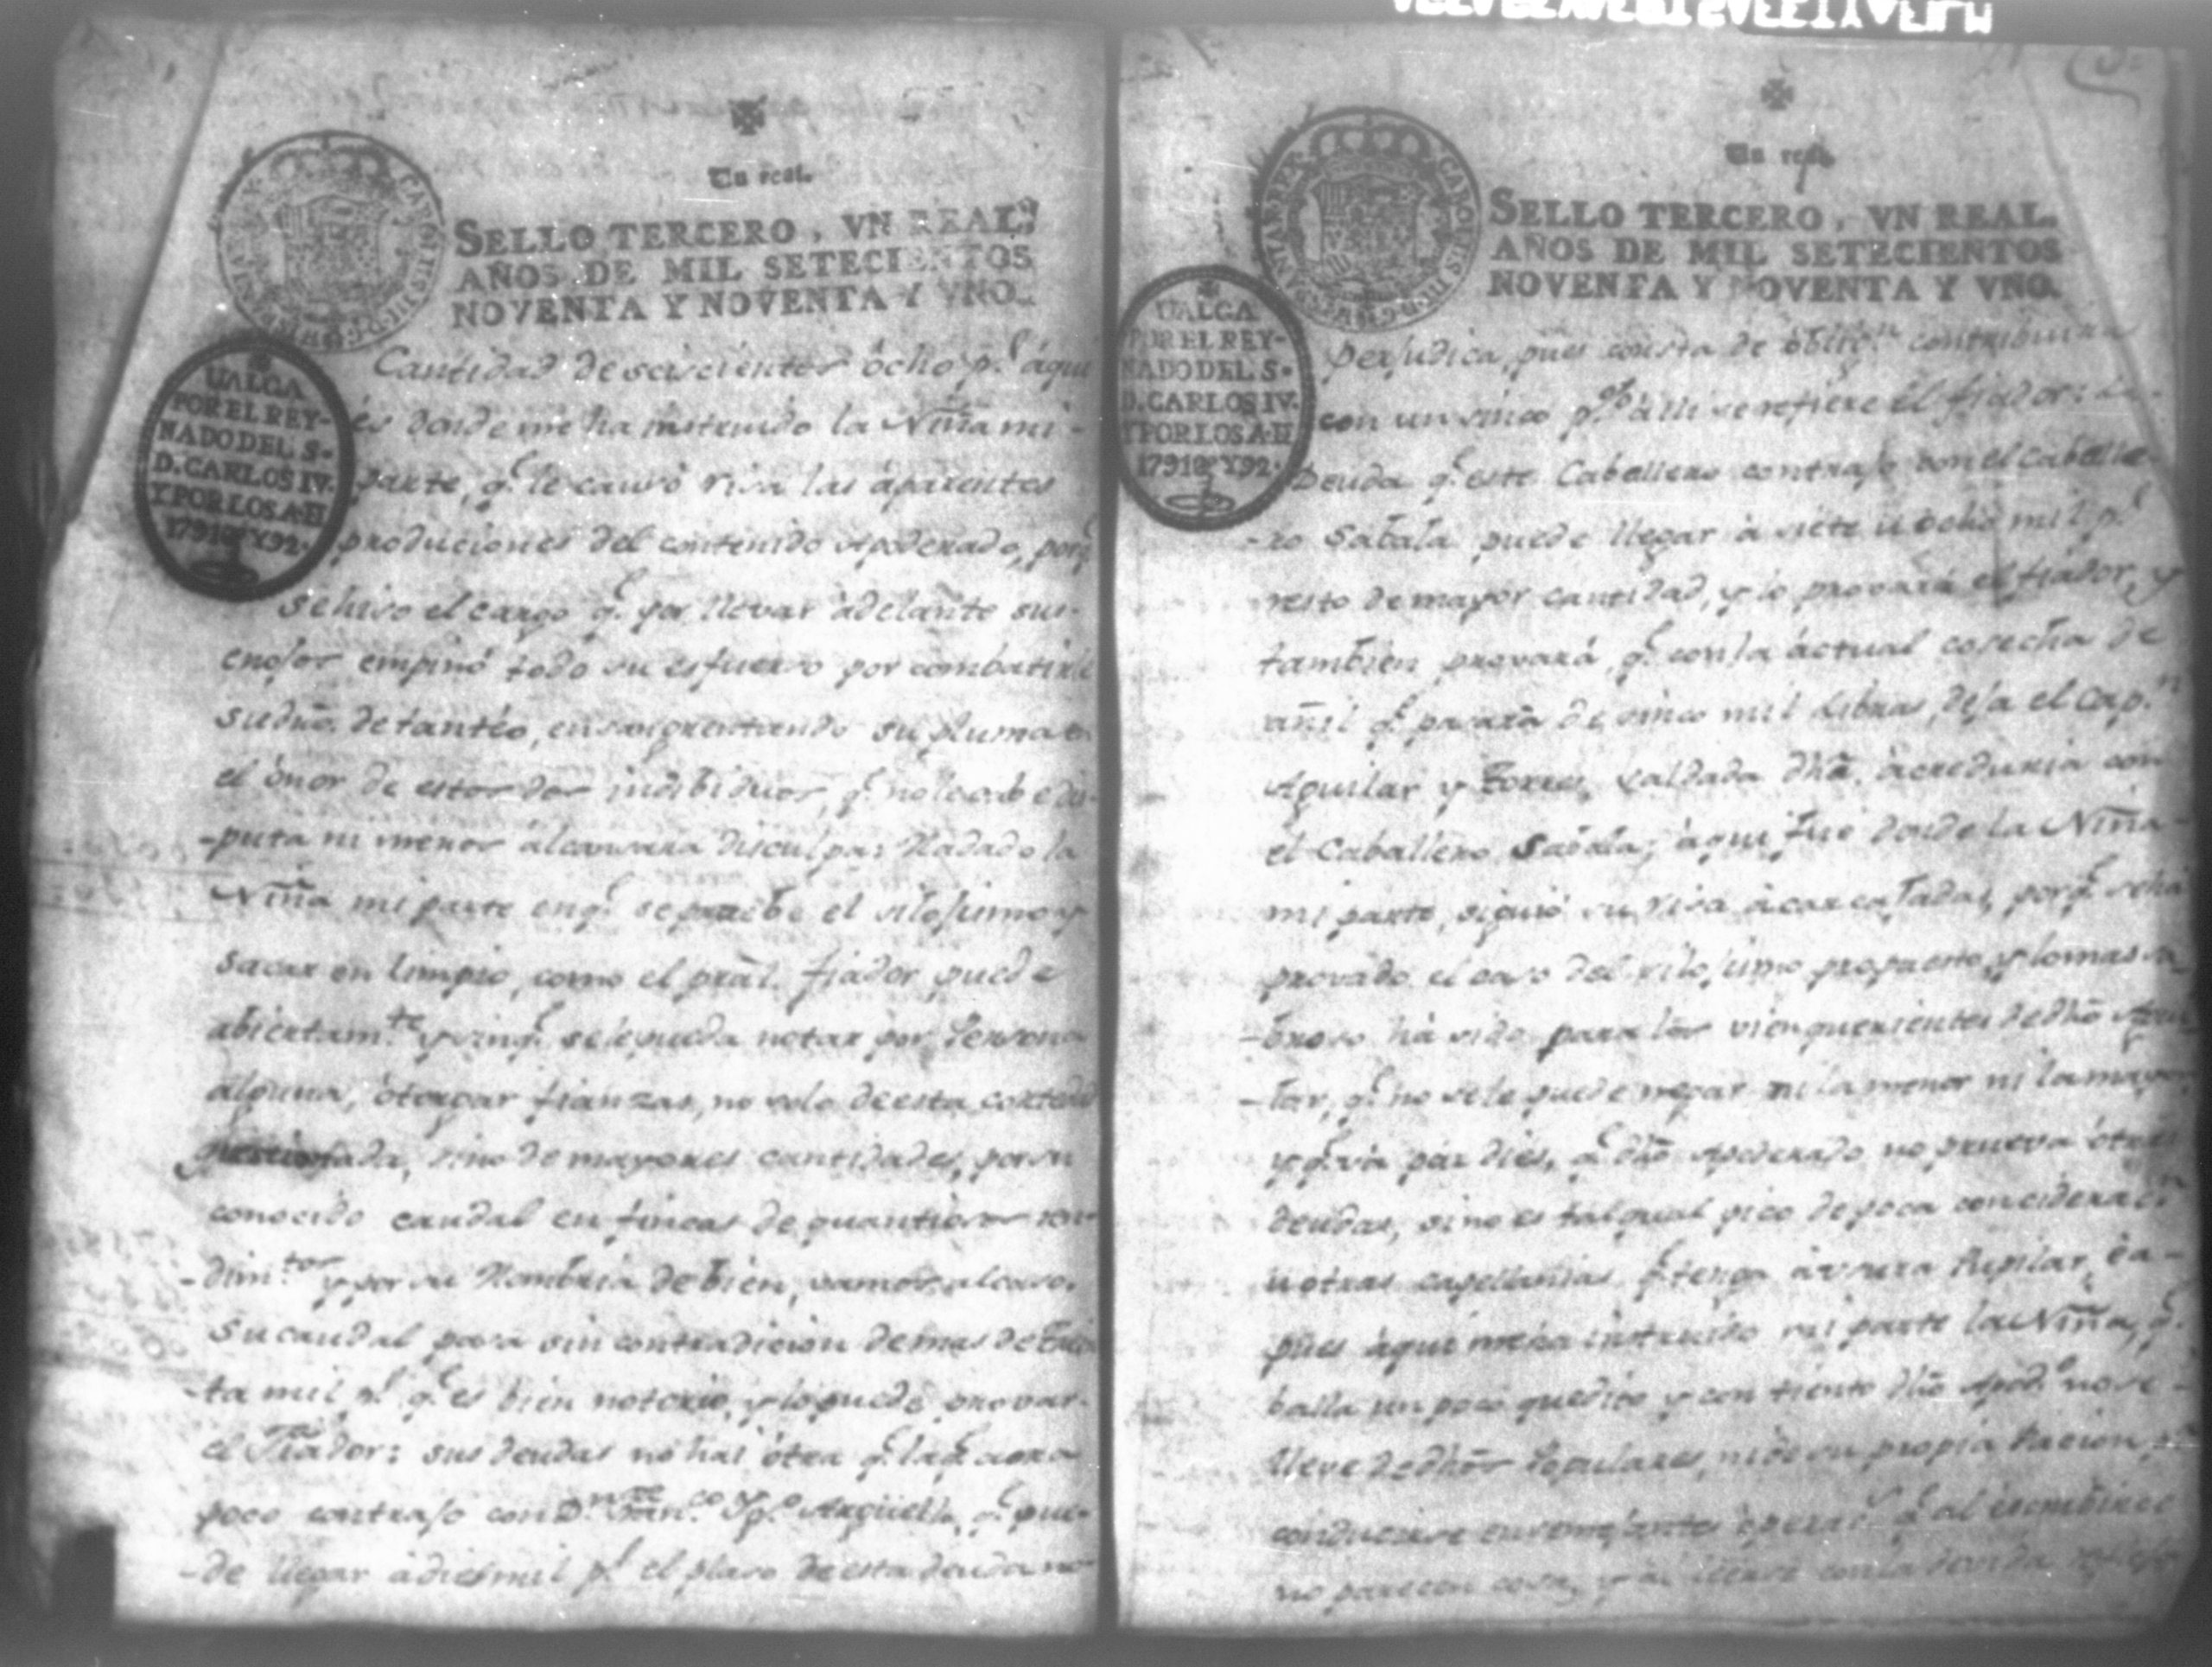 Un real.
SELLO TERCERO, VN REAL,
AÑOS DE MIL SETECIENTOS
NOVENTA Y NOVENTA Y VNO.
UALGA
POR EL REY-
NADO DEL S.
D. CARLOS IV.
Y POR LOS A. D
1791 Y 92.
Cantidad de seiscientos ocho p.s áqui
és donde me ha instruido la Niña mi
parte, q.e le causó risa las áparentes
produciones del contenido Apoderado, porq.e
se hiso el cargo q.e por llevar ádelante sus
enojos empinó todo su esfuerso por combatirle
su dro. de tantéo, ensangrentando su pluma en
el ónor de estos dos indibiduos, q.e no le cabe dis-
-puta ni menos álcansara disculpa: Hadado la
Niña mi parte en q.e se pruebe el silojismo y
sacar en limpio, como el pral. fiador puede
abiertam.te y sin q.e se le pueda notar por Persona
alguna, ótorgar fianzas, no solo de esta cortedad
sino de mayores cantidades, por su
conocido caudal en fincas de quantiosos ren-
-dim.tos y por su Hombria de bien, vamos al caso.
Su caudal pasa sin contradicion de mas de trein
-ta mil p.s q.e es bien notorio, y lo puede provar
el Fiador: sus deudas no hai ótra q.e la q.e aora
poco contrajo con D.n Fran.co Yg.o Arguello, q.e pue-
-de llegar á dies mil p.s el plaso de esta deuda no
Un real.
SELLO TERCERO, VN REAL.
AÑOS DE MIL SETECIENTOS
NOVENTA Y NOVENTA Y VNO.
UALGA
POR EL REY-
NADO DEL S.
D. CARLOS IV.
Y POR LOS A. D
1791 Y 92.
perjudica, pues consta de óblig.n contribuirla
con un sinco p.% álli se refiere él fiador: La
Deuda q.e este Caballero contrajo con el Caballe
-ro Sabala puede llegar á siete ú ócho mil p.s
resto de mayor cantidad, y lo provará el fiador, y
tambien provará, q.e con la áctual cosecha de
añil q.e pasara de sinco mil Libras, deja el Cap.n
Aguilar y Torres, saldada dha. ácreduria con
el Caballero Sabala; áqui fué donde la Niña
mi parte, siguió su risa á carcajadas, porq.e se ha
provado el caso del silojismo propuesto, y lo mas sa
-broso há sido para los vien querientes de dho Agui
-lar, q.e no se le puede negar ni la menor ni la mayor
y q.e vá par dies, q.e dho Apoderado no prueva ótras
deudas, si no es tal qual pico de poca consideraci.n
ú otras capellanias q.e tenga á usura Pupilar, ea-
pues áqui me ha instruido mi parte la Niña, q.e
balla un poco quedito y con tiento dho Apod.o no se
lleve de dhos Populares, ni de su propia Pacion,
conducirse en semejantes óperac.s q.e al escribirse
no parecen cosa, y al leerse con la devida